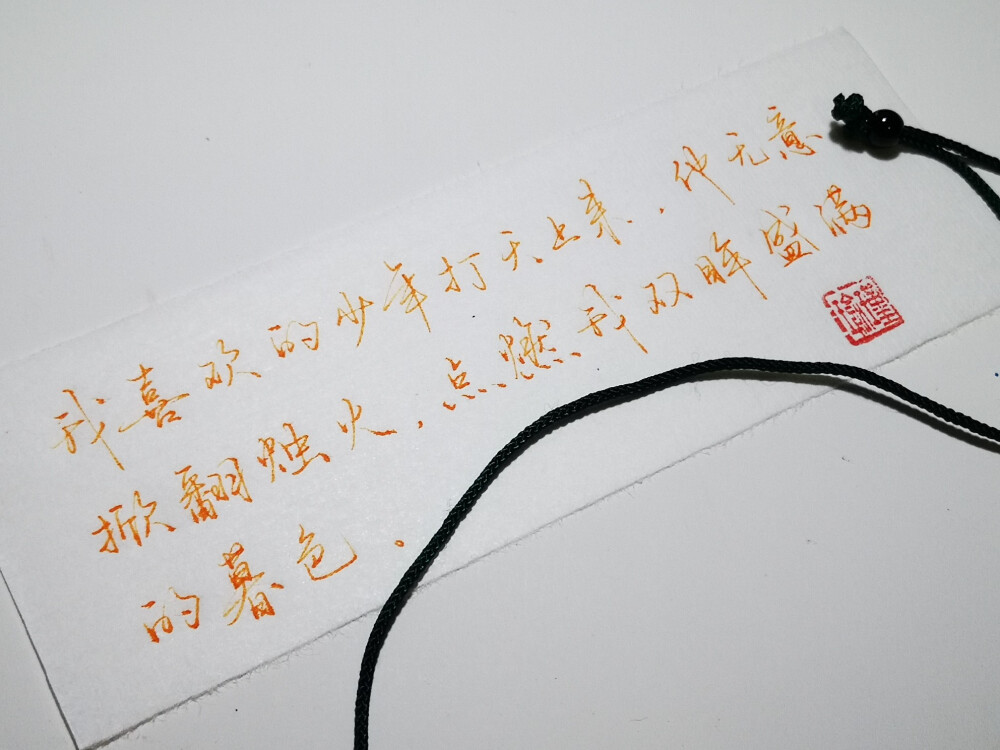 我喜欢的少年打天上来，他无意
掀翻烛火，点燃我双眸盛满
的暮色。